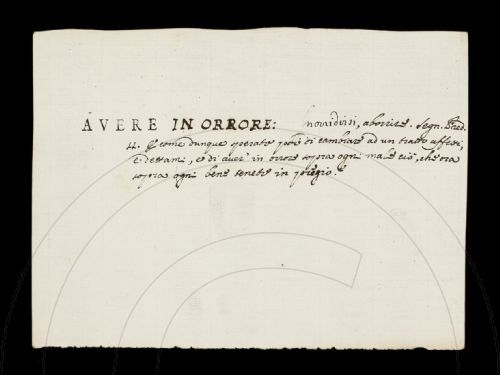 AVERE IN ORRORE: inorridirsi, aborrire. Segn. Pred.
4. E come dunque sperate poi di cambiare ad un tratto affetti,
e dettami, e di aver in orrore sopra ogni male ciò, che ora
sopra ogni bene tenete in pregio. E